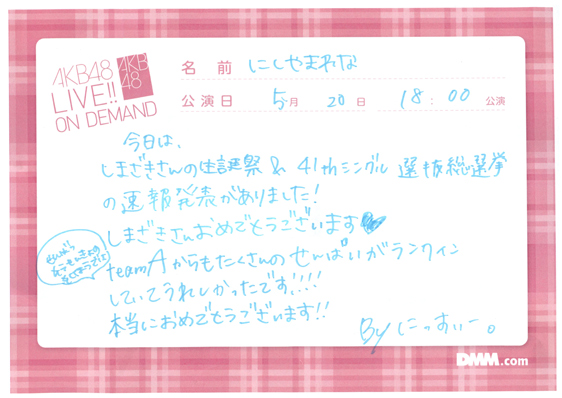 AKB48
LIVE!!
ON DEMAND
AKB
48
名 前 にしやまれな
公演日 5月 20日 18:00 公演
今日は、
しまざきさんの生誕祭 & 41thシングル 選抜総選挙
の速報発表がありました!
しまざきさんおめでとうございます
teamAからもたくさんのせんぱいがランクイン
していてうれしかったです!!!
本当におめでとうございます!!
By にっすぃー。
DMM.com